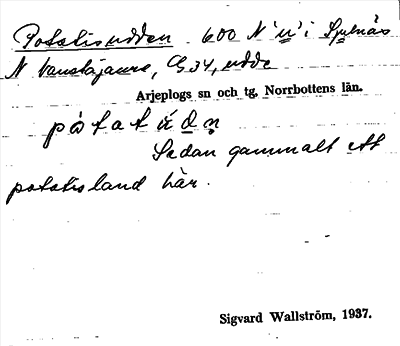 Potatisudden. 600 N "u" i Sjulnäs
N Vanstajaure, G 34, udde
Arjeplogs sn och tg, Norrbottens län.
Sedan gammalt ett
potatisland här.
Sigvard Wallström, 1937.